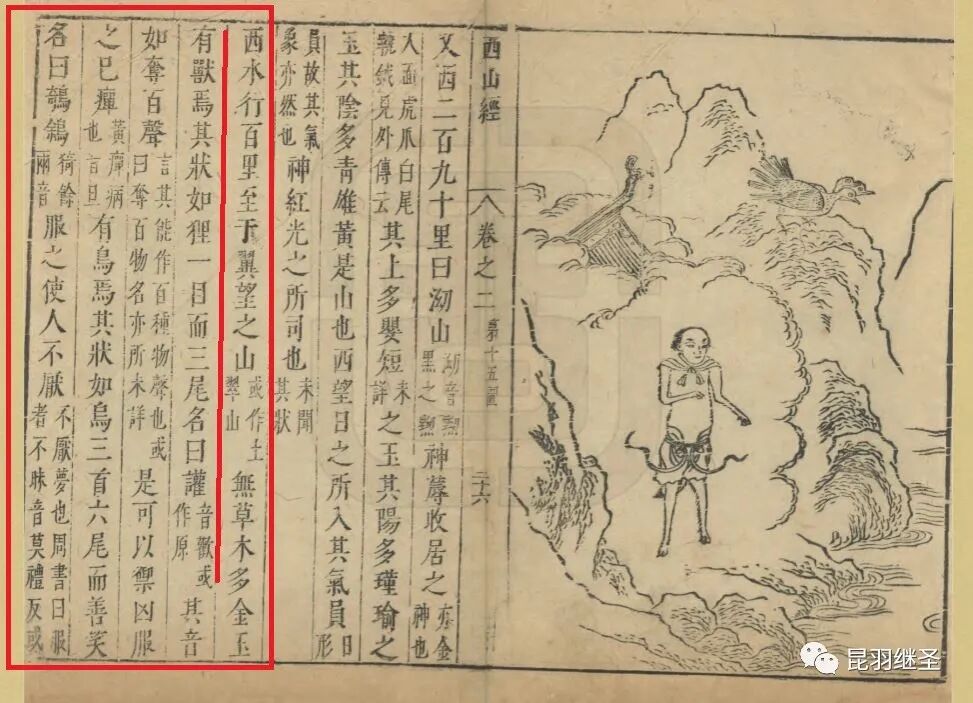 西山經 卷之二 十五圖 二十六
又西二百九十里曰泑山泑音黝黑之黝神蓐收居之亦金神也
人面虎爪白尾執鉞見外傳云其上多嬰短未詳之玉其陽多瑾瑜之
玉其陰多青雄黃是山也西望日之所入其氣員日形
員故其氣象亦然也神紅光之所司也未聞其狀
西水行百里至于翼望之山或作土翠山無草木多金玉
有獸焉其狀如狸一目而三尾名曰讙音歡或作原其音
如奪百聲言其能作百種物聲也或曰奪百物名亦所未詳是可以禦凶服
之已癉黃癉病也音旦有鳥焉其狀如烏三首六尾而善笑
名曰鵸鵌猗餘兩音服之使人不厭不厭夢也周書曰服者不昧音莫禮反或
昆羽继圣